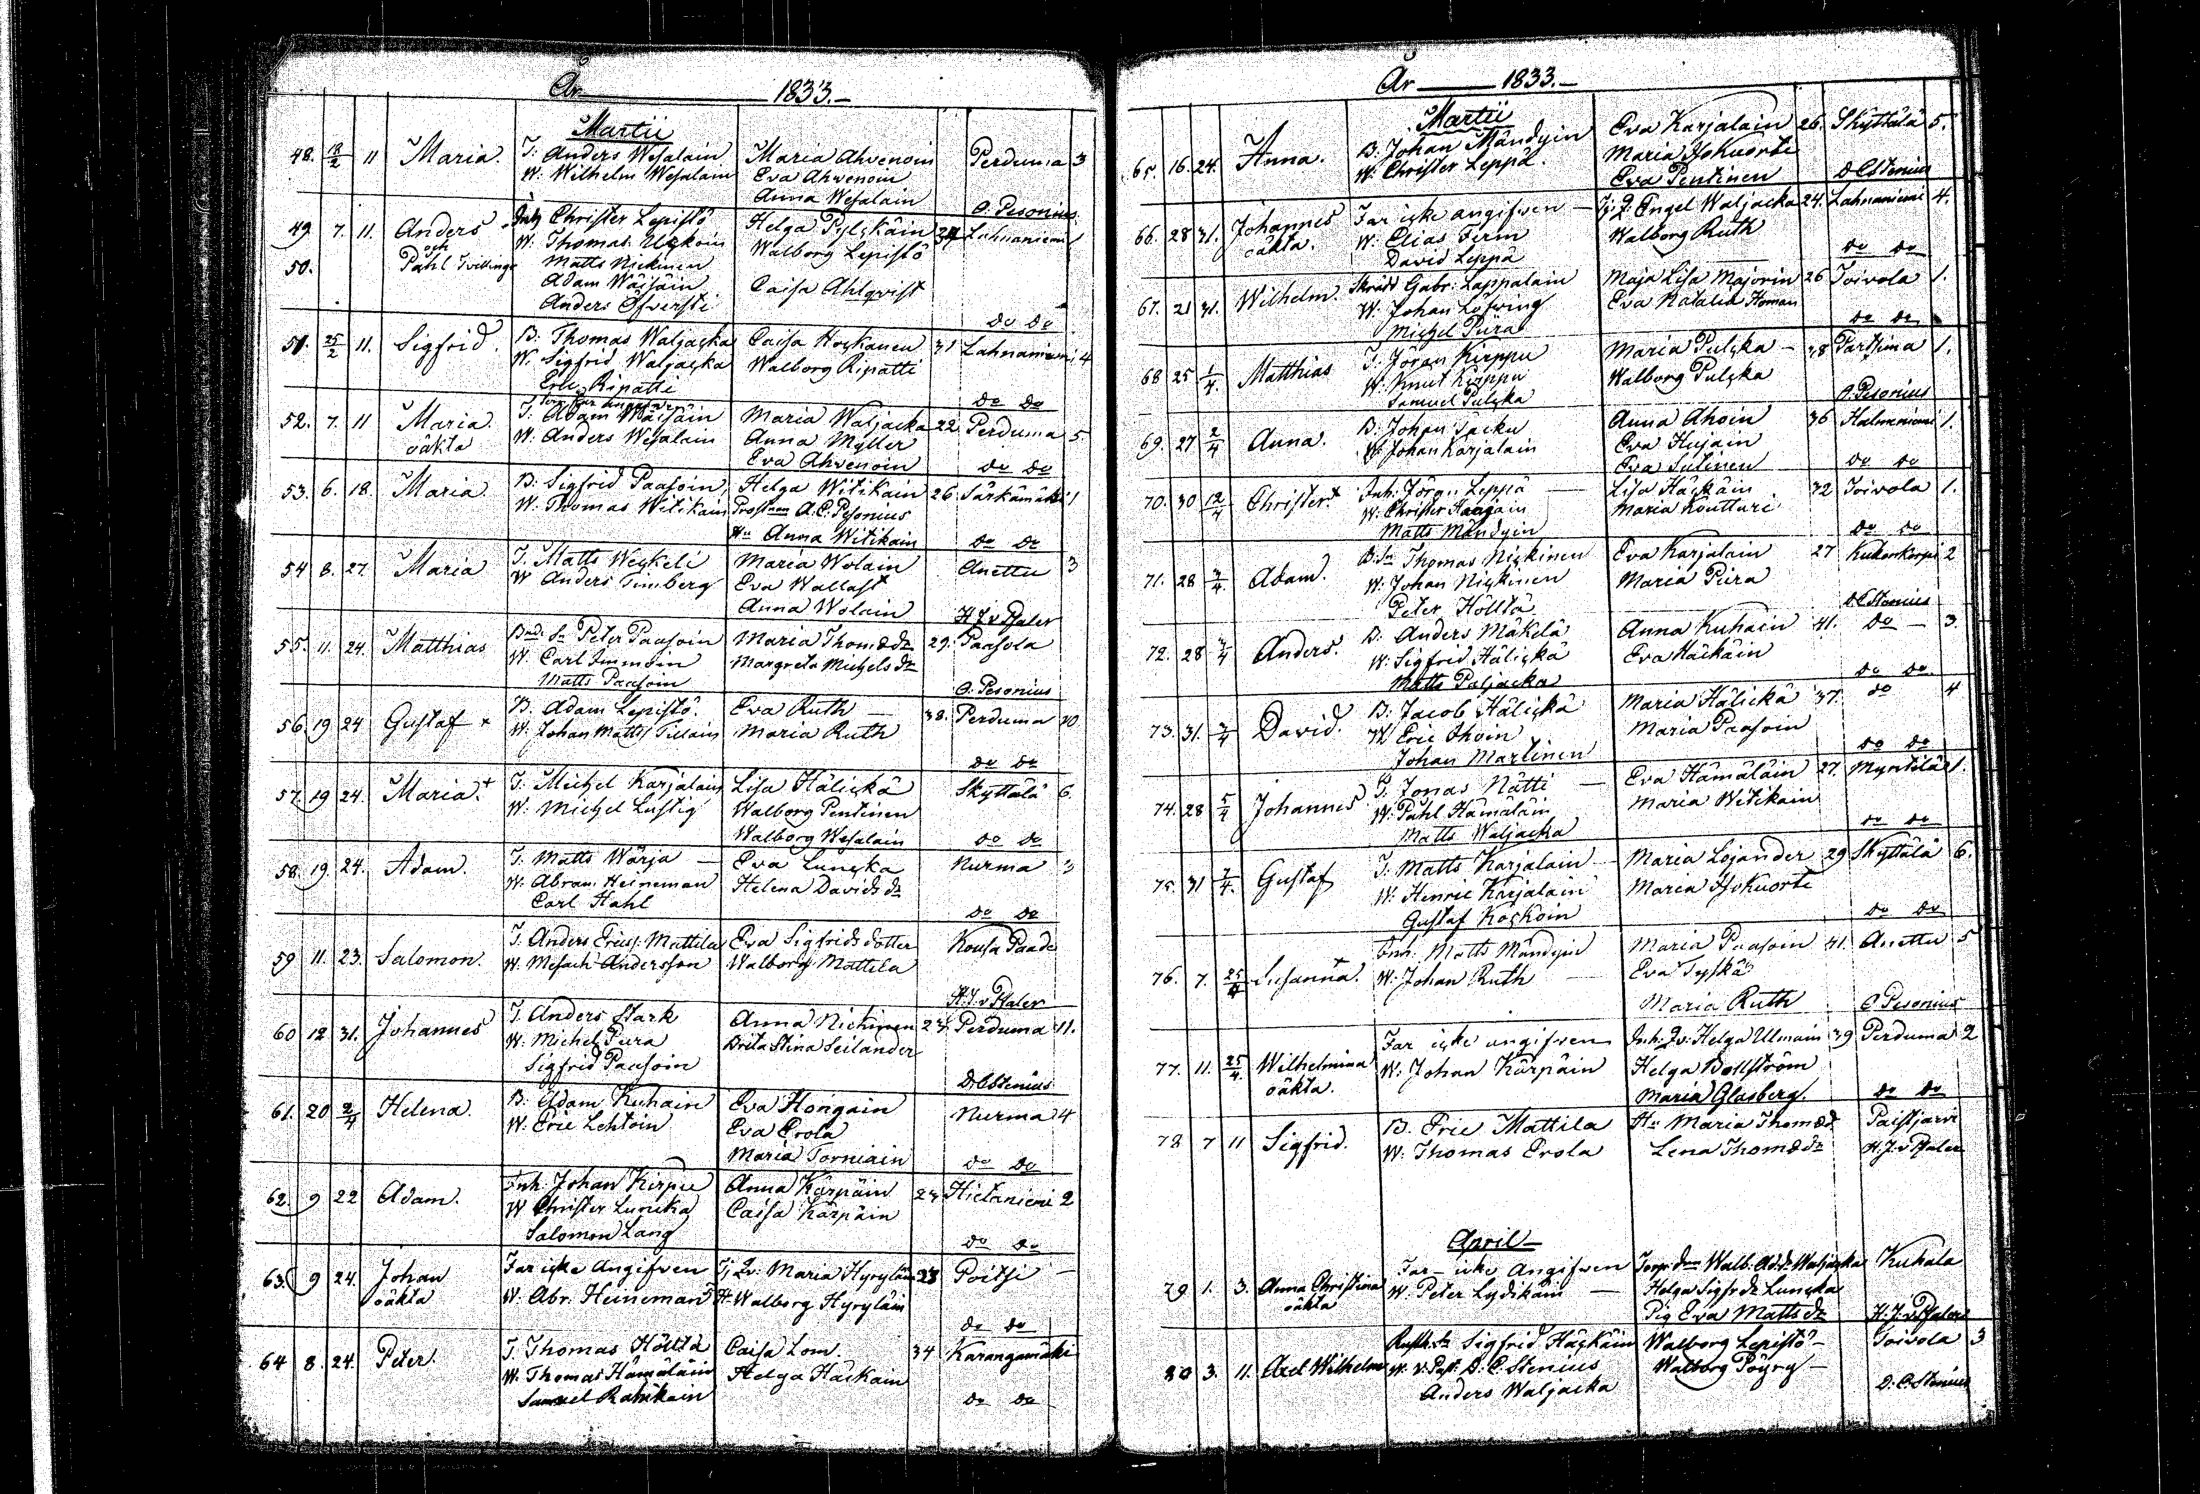 År 1833.
Martii
48. 18/2 11 Maria. T: Anders Wesalain Maria Ahvenoin Perduma 3
W: Wilhelm Wesalain Eva Ahvenoin
Anna Wesalain O. Pesonius
49. 7. 11. Anders Inh Christer Lepistö Helga Pylckäin 34 Lahnaniemi 1
och W: Thomas Walborg Lepistö
50. Pahl Tvillingar Matts Nickinen
Adam Wäisäin Caisa Ahlqvist
Anders Öfversti
do do
51. 25/2 11. Sigfrid. B: Thomas Waljacka Caisa Hockanen 31 Lahnaniemi 4
W: Sigfrid Waljacka Walborg Ripatti
Eric Ripatti do do
52. 7. 11 Maria T: Adam Wäisäin Maria Waljacka 22. Perduma 5.
oäkta W: Anders Wesalain Anna Myller
Eva Ahvenoin do do
53. 6. 18. Maria B: Sigfrid Paasoin Helga Witikain 26. Särkämäki 1
W: Thomas Witikain A. C. Pesonius
Hu Anna Witikain do do
54 8. 27. Maria T. Matts Weckeli Maria Wolain Anettu 3
W Anders Timberg Eva Wallast
Anna Wolain H J v Pfaler
55. 11. 24. Matthias Peter Paasoin Maria Thom.dr 29. Paasola
W Carl Immoin Margreta Michelsdr
Matts Paasoin O. Pesonius
56. 19 24 Gustaf + B. Adam Lepistö. Eva Ruth 38. Perduma 10
W: Johan Matts Pillain Maria Ruth
do do
57. 19 24. Maria + T: Michel Karjalain Lisa Hälickä Skyttälä 6.
W: Michel Lustig Walborg Pentinen
Walborg Wesalain do do
58. 19. 24. Adam. T. Matts Wärja Eva Luncka Nurma 3
W. Abram Heineman Helena Davidsdr
Carl Hahl do do
59 11. 23. Salomon. T. Anders Ericss: Mattila Eva Sigfridsdotter Kousa Paade
W. Mesach Andersson Walborg Mattila
H. J. v Pfaler
60 12 31. Johannes T. Anders Stark Anna Nickinen 23. Perduma 11.
W: Michel Pura Brita Stina Seilander
Sigfrid Paasoin
D. C. Stenius
61. 20 2/4 Helena. B: Adam Kuhain Eva Hongain Nurma 4
W. Eric Lehtoin Eva Erola
Maria Torniain do do
62. 9 22 Adam. Inh: Johan Kirpu Anna Kärpäin 23 Hietaniemi 2
W Christer Luncka Caisa Kärpäin
Salomon Lang do do
63. 9 24. Johan Far icke angifven Tj. Qv: Maria Hyryläin 23 Poitsi
oäkta W: Abr: Heineman Walborg Hyryläin
do do
64 8. 24. Peter. T. Thomas Hölttä Caisa Lom. 34 Karangamäki
W. Thomas Hämäläin Helga Häckäin
Samuel Rahikain do do
År 1833.
Martii
65. 16. 24. Anna. B: Johan Mändyin Eva Karjalain 26. Skyttälä 5.
W: Christer Leppä. Maria Jokuorti
Eva Pentinen D C Stenius
66. 28 31. Johannes Far icke angifven Tj. Q. Engel Waljacka 24. Lahnaniemi 4.
oäkta. W: Elias Ferm Walborg Ruth
David Leppä do do
67. 21 31. Wilhelm. Skrädd Gabr: Lappalain Maja Lisa Majorin 26 Toivola 1.
W. Johan Löfving Eva Natalia Homan
Michel Pura do do
68 25 1/4. Matthias T: Jöran Kirppu Maria Pulcka 38 Partsima 1.
W: Knut Kirppu Walborg Pulcka
Samuel Pulcka O. Pesonius
69. 27 2/4 Anna. B: Johan Jäcku Anna Ahoin 36 Halmeniemi 1.
W: Johan Karjalain Eva Hujain
Eva Sulinen do do
70. 30 12/4 Christer + Inh: Jöran Leppä Lisa Häckäin 32 Toivola 1.
W. Christer Maria Koutturi
Matts Mändyin do do
71. 28 3/4. Adam. B.Sn Thomas Nickinen Eva Karjalain 27 2
W: Johan Nickinen Maria Pura
Peter Hölttä D. C. Stenius
72. 28 3/4 Anders. B. Anders Mäkelä Anna Kuhain 41. do 3.
W: Sigfrid Hälickä Eva Häckäin
Matts Paljacka do do
73. 31. 3/4 David. B: Jacob Hälickä Maria Hälickä 37. do 4
W Eric Ahoin Maria Paasoin
Johan Martinen do do
74. 28 5/4 Johannes T. Jonas Nätti Eva Hämäläin 27. Myntilä 1.
W: Pahl Hämäläin Maria Witikain
Matts Waljacka do do
75. 31 7/4. Gustaf T: Matts Karjalain Maria Lojander 29 Skyttälä 6.
W: Henric Karjalain Maria Jokuorti
Gustaf Kockoin do do
76. 7. 25/4 Susanna. + Inh: Matts Mändyin Maria Paasoin 41. Anettu 5
W: Johan Ruth Eva Tyskä
Maria Ruth O. Pesonius
77. 11. 25/4. Wilhelmina Far icke angifven Inh: Qv: Helga Ulmain 39 Perduma 2
oäkta. W. Johan Kärpäin Helga Bollström
Maria Glasberg. do do
78 7 11 Sigfrid. B. Eric Mattila Hu Maria Thom.dr Paistjarvi
W. Thomas Erola Lena Thom.dr H. J. v Pfaler
April
79 1. 3. Anna Christina Far icke angifven Walb. Ad.dr Waljacka Kukala
oäkta W. Peter Lydikäin Helga Sigfr.dr Luncka
Pig Eva Mattsdr H. J. v Pfaler
80 3. 11. Axel Wilhelm Sigfrid Häckäin Walborg Lepistö Toivola 3
W. v. Past. D. C. Stenius Walborg Pöyry
Anders Waljacka D. C. Stenius